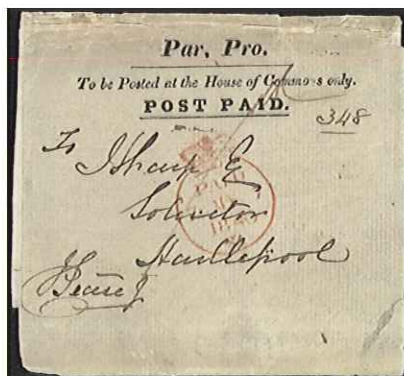 Par. Pro.
To be Posted at the House of Commons only.
POST PAID.
348
To
Esq
Solicitor
Hartlepool
PAID